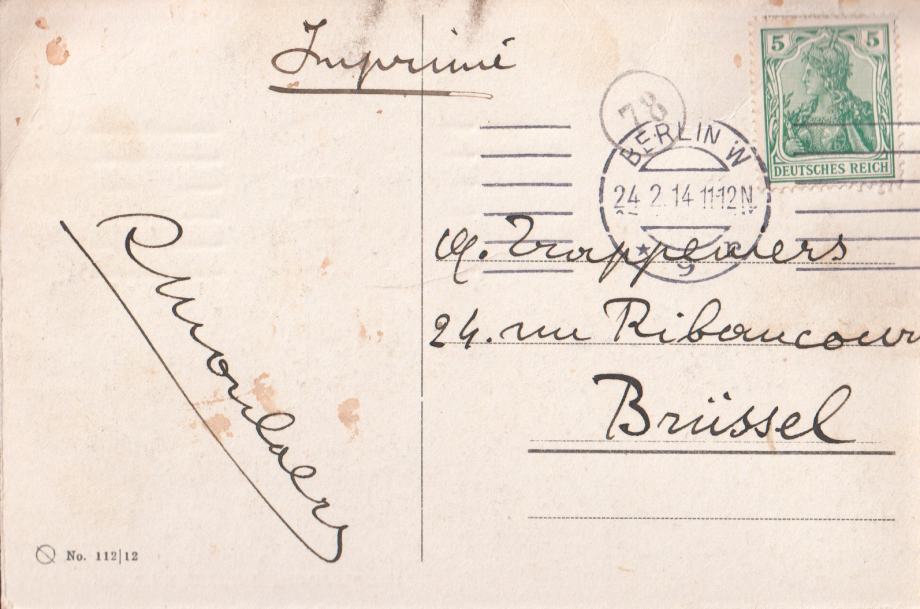 Imprimé
78
5 5
DEUTSCHES REICH
BERLIN W
24.2.14 11-12N
9
M. Trappeniers
24. rue Ribaucour
Brüssel
No. 112|12